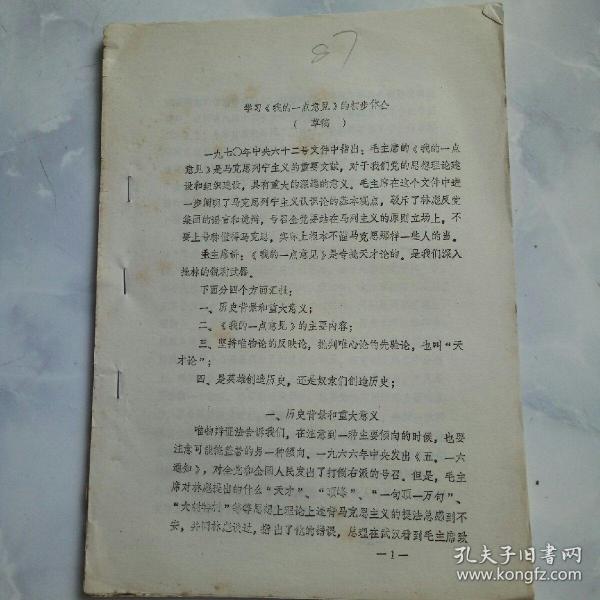 87
学习《我的一点意见》的初步体会
（ 草稿 ）
一九七〇年中央六十二号文件中指出：毛主席的《我的一点
意见》是马克思列宁主义的重要文献，对于我们党的思想理论建
设和组织建设，具有重大的深远的意义。毛主席在这个文件中进
一步阐明了马克思列宁主义认识论的基本观点，驳斥了林彪反党
集团的谣言和诡辩，号召全党要站在马列主义的原则立场上，不
要上号称懂得马克思，实际上根本不懂马克思那样一些人的当。
毛主席讲：《我的一点意见》是专批天才论的。是我们深入
批林的锐利武器。
下面分四个方面汇报：
一、历史背景和重大意义；
二、《我的一点意见》的主要内容；
三、坚持唯物论的反映论，批判唯心论的先验论，也叫“天
才论”；
四、是英雄创造历史，还是奴隶们创造历史；
一、历史背景和重大意义
唯物辩证法告诉我们，在注意到一种主要倾向的时候，也要
注意可能掩盖着的另一种倾向。一九六六年中央发出《五．一六
通知》，对全党和全国人民发出了打倒右派的号召。但是，毛主
席对林彪提出的什么“天才”、“顶峰”、“一句顶一万句”、
“大树特树”等等思想上理论上违背马克思主义的提法总感到不
安，并同林彪谈过，指出了他的错误，总理在武汉看到毛主席致
—1—
孔夫子旧书网
www.kongfz.com